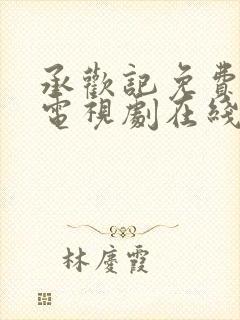 承歡記免費
電視劇在綫
林慶霞